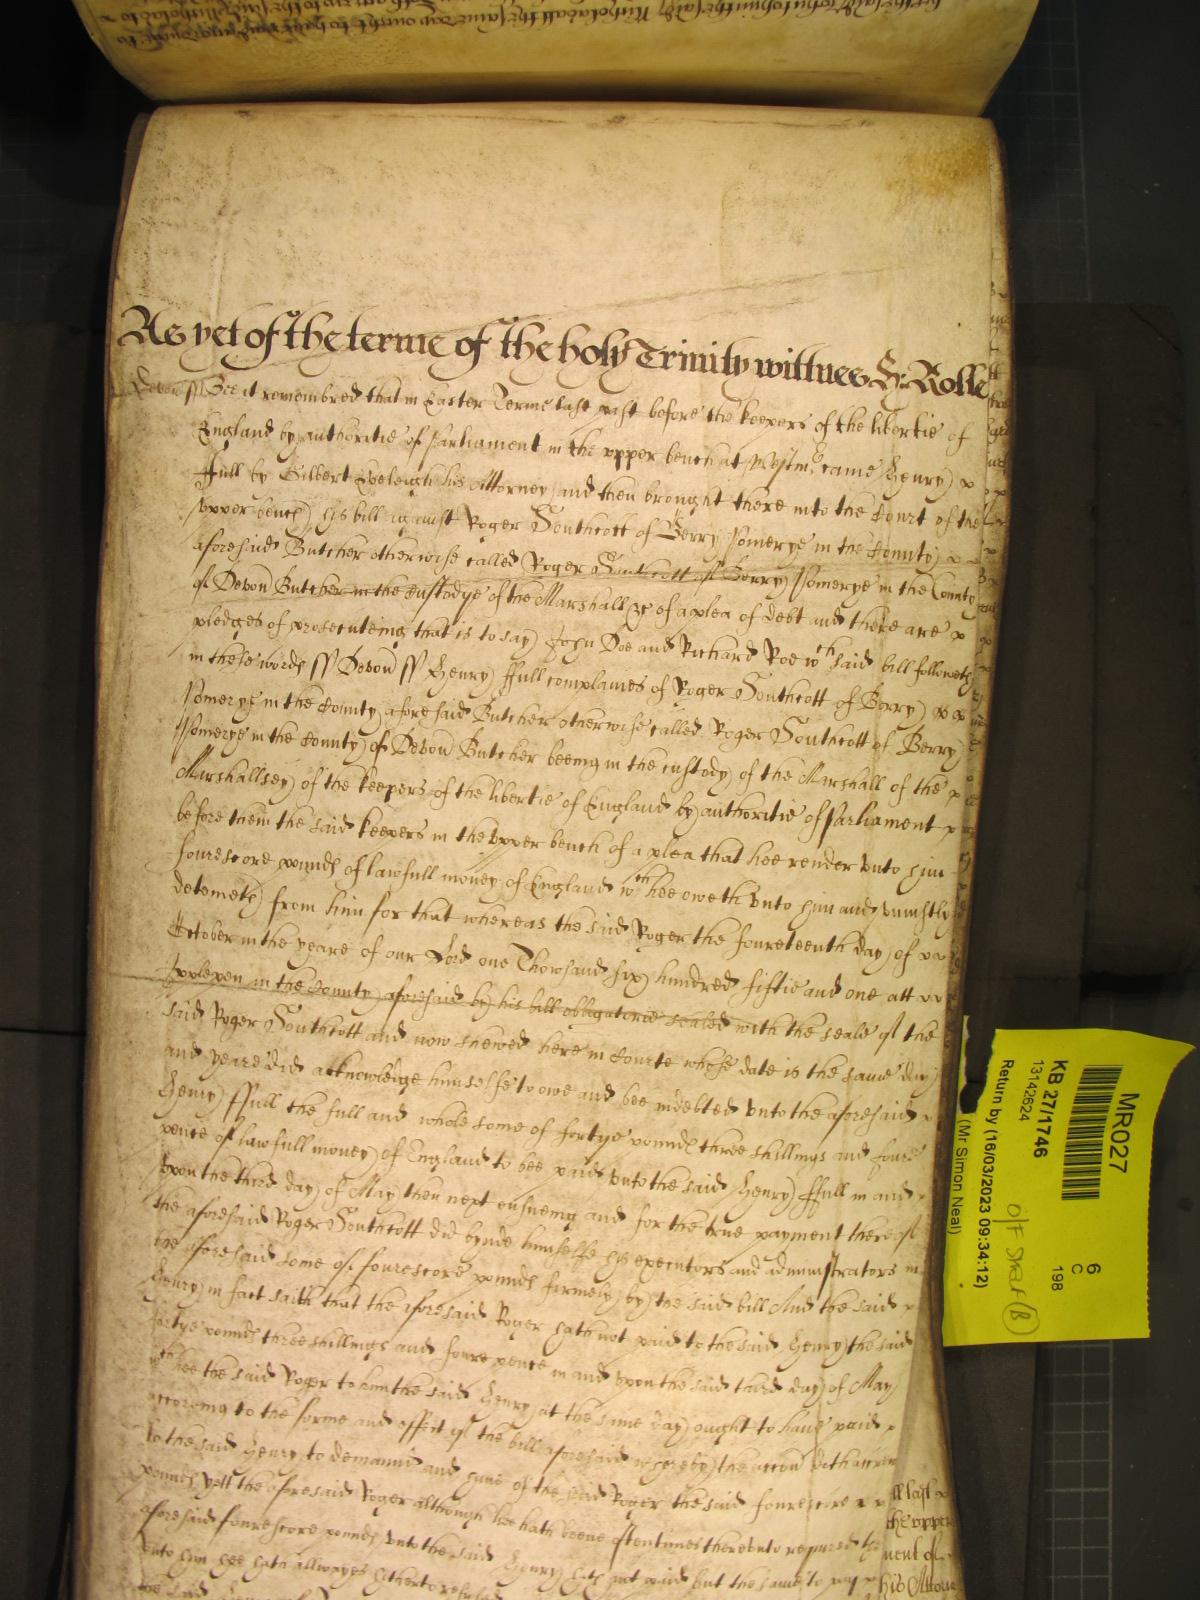 As yet of the terme of the holy Trinity wittnes H: Rolle
Devon ss Bee it remembred that in Easter Terme last past before the keepers of the libertie of
England by authoritie of Parliament in the upper bench at Westmr came Henry
ffull by Gilbert Eveleigh his Attorney and then brought there into the Court of the
upper bench his bill against Roger Southcott of Berry Pomerye in the County
aforesaid Butcher otherwise called Roger Southcott of Berry Pomerye in the County
of Devon Butcher in the custodye of the Marshall &c of a plea of debt and there are
pledges of prosecuteing that is to say John Doe and Richard Roe wch said bill followeth
in these words ss Devon ss Henry ffull complaines of Roger Southcott of Berry
Pomerye in the County aforesaid Butcher otherwise called Roger Southcott of Berry
Pomerye in the County of Devon Butcher beeing in the custody of the Marshall of the
Marshallsey of the keepers of the libertie of England by authoritie of Parliament
before them the said keepers in the upper bench of a plea that hee render unto him
fourescore pounds of lawfull money of England wch hee oweth unto him and uniustly
deteineth from him for that whereas the said Roger the foureteenth day of
October in the yeare of our Lord one Thowsand six hundred fiftie and one att
Ipplepen in the County aforesaid by his bill obligatorie sealed with the seale of the
said Roger Southcott and now shewed here in Courte whose date is the same day
and yeare did acknowledge himselfe to owe and bee indebted unto the aforesaid
Henry ffull the full and whole some of fortye pounds three shillings and foure
pence of lawfull money of England to bee paid unto the said Henry ffull in and
upon the third day of May then next ensueing and for the true payment thereof
the aforesaid Roger Southcott did bynde himselfe his executors and administrators in
the aforesaid some of fourescore pounds firmely by the said bill And the said
Henry in fact saith that the aforesaid Roger hath not paid to the said Henry the said
fortye pounds three shillings and foure pence in and upon the said third day of May
wch hee the said Roger to him the said Henry at the same day ought to have paid
according to the forme and effect of the bill aforesaid whereby the accon doth accrew
to the said Henry to demannd and have of the said Roger the said fourescore
pounds yett the aforesaid Roger although hee hath beene oftentimes thereunto required the
aforesaid fourescore pounds unto the said Henry hath not paid but the same to pay
unto him hee hath allwayes hitherto refused
the said
ll last
the upper
ment of
his Attor
MR027
KB 27/1746
13142624
Return by (16/03/2023 09:34:12)
(Mr Simon Neal)
6
C
198
O/F Shelf (B)